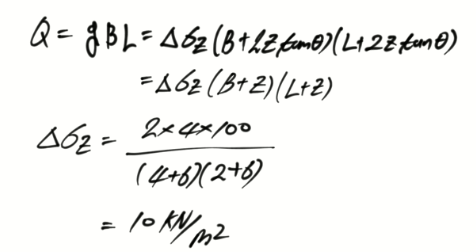 Q = qBL = Δσz(B+2Z tanθ)(L+2Z tanθ)
= Δσz(B+Z)(L+Z)
Δσz = 2×4×100
(4+6)(2+6)
= 10 KN/m2